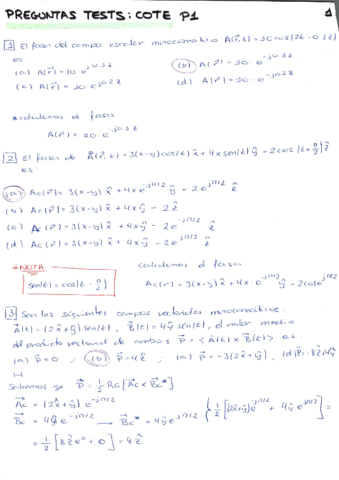 PREGUNTAS TESTS: COTE P1
1
1 El fasor del campo escalar monocromático A(r,t) = 10 cos(2t - 0.3z)
es
(a) A(r) = 10 e^{-j0.3z} (b) A(r) = 10·e^{-j0.3z}
(c) A(r) = 10·e^{j0.3z} (d) A(r) = 10·e^{-j0.3z}
calculemos el fasor
A(r) = 10·e^{-j0.3z}
2 El fasor de A(r,t) = 3(x-y)cos(t) x̂ + 4x sen(t) ŷ - 2cos(t+π/2) ẑ
es:
(a) Ac(r) = 3(x-y) x̂ + 4x e^{-jπ/2} ŷ - 2e^{jπ/2} ẑ
(b) Ac(r) = 3(x-y) x̂ + 4x ŷ - 2 ẑ
(c) Ac(r) = 3(x-y) x̂ + 4x ŷ - 2e^{-jπ/2} ẑ
(d) Ac(r) = 3(x-y) x̂ + 4x ŷ - 2e^{jπ/2} ẑ
NOTA calculemos el fasor
sen(t) = cos(t - π/2) Ac(r) = 3(x-y) x̂ + 4x·e^{-jπ/2} ŷ - 2e^{jπ/2} ẑ
3 Sean los siguientes campos vectoriales monocromáticos.
A(t) = (2x̂+ŷ) sen(t), B(t) = 4ŷ sen(t), el valor medio
del producto vectorial de ambos P = <A(t) × B(t)> es
(a) P = 0, (b) P = 4ẑ, (c) P = -3(2x̂+ŷ), (d) P = -8x̂+4ŷ
Sabemos que P = 1/2 Re[Ac × Bc*]
Ac = (2x̂+ŷ) e^{-jπ/2}
Bc = 4ŷ e^{-jπ/2} → Bc* = 4ŷ e^{jπ/2} { 1/2 [(2x̂+ŷ)e^{-jπ/2} × 4ŷ e^{jπ/2}] =
= 1/2 [8ẑ e° + 0] = 4ẑ